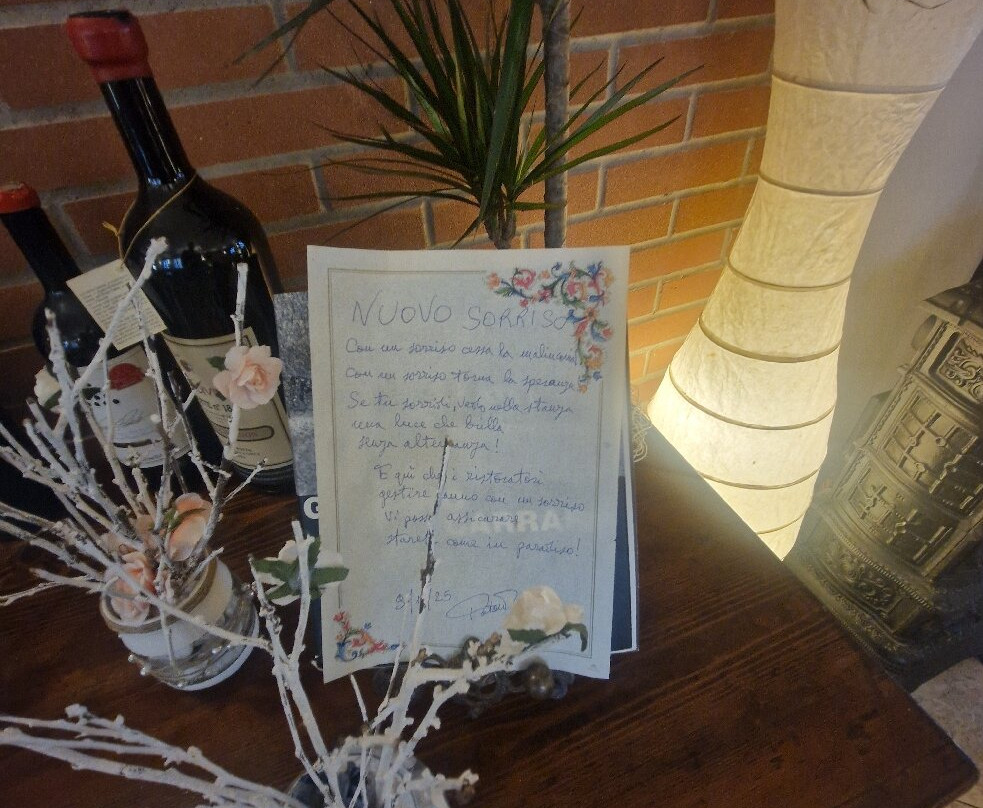 NUOVO SORRISO
Con un sorriso cessa la
Con un sorriso torna la speranza
Se tu sorridi, vedo nella stanza
una luce che brilla
senza alternanza!
E qui che i ristoratori
gestiranno con un sorriso
Vi posso assicurare
come in paradiso!